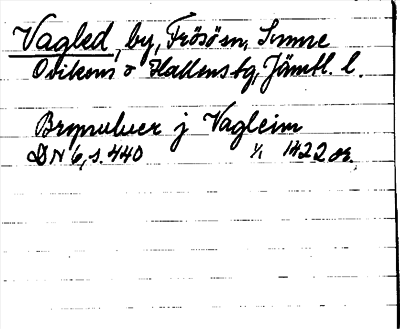 Vagled, by, Frösösn, Sunne
Ovikens o Hallens tg, Jämtl. l.
Brynuluer j Vagleim
DN 6, s. 440 1/1 1422 or.